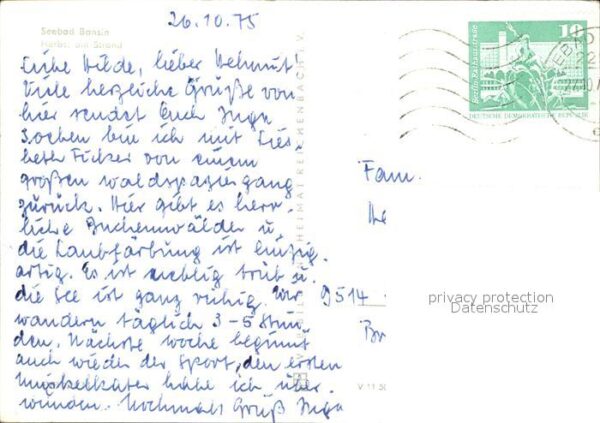 26.10.75
Seebad Bansin
Herbst am Strand
Liebe Hilde, lieber Helmut
Viele herzliche Grüße von
hier sendet Euch Inga
Soeben bin ich mit Lies
beth Ficker von einem
großen Waldspaziergang
zurück. Hier gibt es herr-
liche Buchenwälder u.
die Laubfärbung ist einzig-
artig. Es ist neblig trüb u.
die See ist ganz ruhig. Wir
wandern täglich 3-5 Stun
den. Nächste Woche beginnt
auch wieder der Sport, den ersten
Muskelkater habe ich über-
wunden. Nochmals Gruß Inga
10
Berlin, Rathausstraße
DEUTSCHE DEMOKRATISCHE REPUBLIK
SEEBAD
Fam.
He
9514
privacy protection
Datenschutz
V 11 50